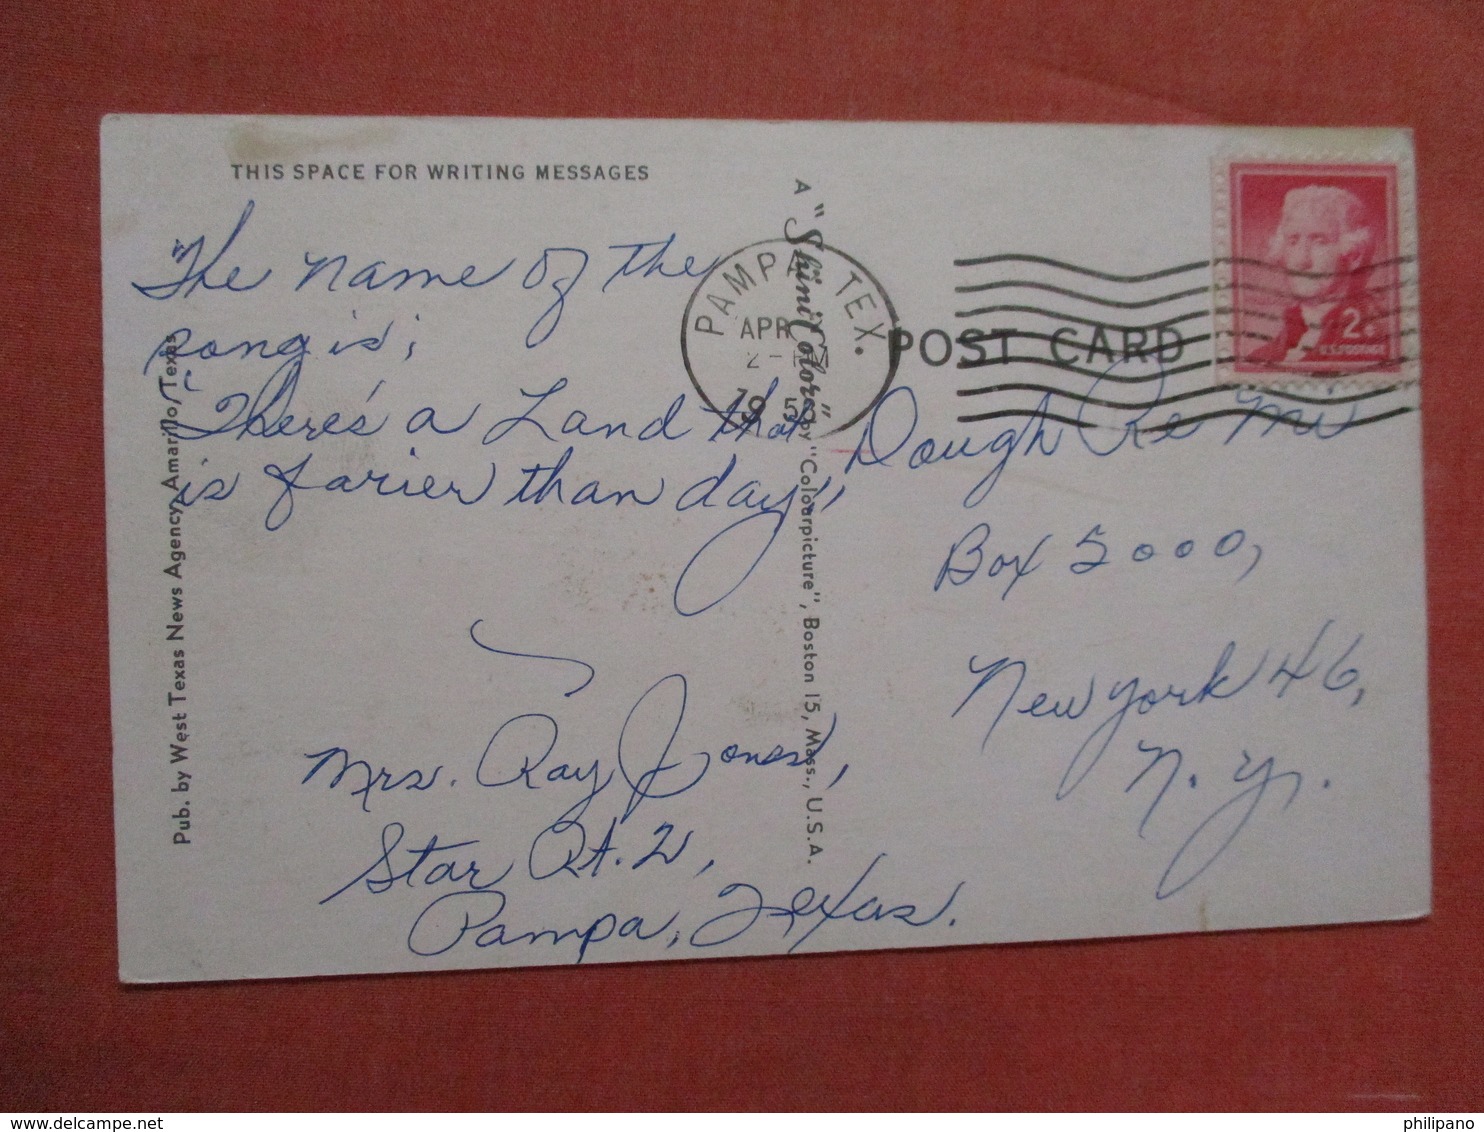 THIS SPACE FOR WRITING MESSAGES
The name of the
song is;
"There's a Land that
is farier than day",
Mrs. Ray Jones,
Star Rt. 2,
Pampa, Texas.
Pub. by West Texas News Agency, Amarillo, Texas
A "ShiniColors" by "Colourpicture", Boston 15, Mass., U.S.A.
PAMPA TEX.
APR
2-
19 5
POST CARD
2¢
U.S. POSTAGE
Dough Re Mi
Box 5000,
New York 46,
N. Y.
delcampe.net
philipano